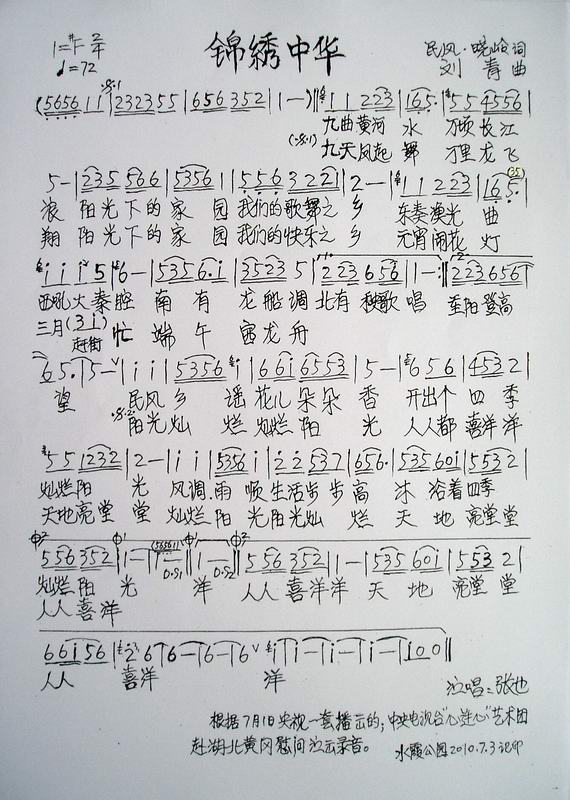 锦绣中华
1=#F 2/4
♩=72
民风·晓岭 词
刘 青 曲
(5656 1 1 | 2323 5 5 | 656 352 | 1 1—) | 1 1 223 | 165. | 5 5 4556 |
九曲黄河 水 万顷长江
九天凤起 舞 万里龙飞
5— | 235 566 | 5356 1 | 556 3221 | 2— | 1 1 223 | 165. |
浪 阳光下的家 园 我们的歌舞之 乡 东秦渔光 曲
翔 阳光下的家 园 我们的快乐之 乡 元宵闹花 灯
i i i 5 | 6— | 535 6.i | 3523 5 | 223 656 | 1—:| 223 656 |
西吼大秦腔 南有 龙船调 北有 秧歌 唱 重阳登高
三月(3 i) 忙 端午 赛龙舟
赶街
65. | 5— | i i | 5356 i | 66i 6553 | 5— | 656 | 453 2 |
望 民风乡 谣 花儿朵朵 香 开出个 四季
阳光灿 烂 灿烂阳 光 人人都 喜洋洋
5 5 1232 | 2— | i i | 5356 i | 2 2 537 | 656. | 535 60i | 553 2 |
灿烂阳 光 风调雨 顺 生活步步高 沐 浴着四季
天地亮堂 堂 灿烂阳 光阳光灿 烂 天 地 亮堂堂
556 352 | 1— | 1— | 1— | 556 352 | 1— | 535 60i | 553 2 |
灿烂阳 光 洋 人人 喜洋洋 天 地 亮堂 堂
人人喜洋
66i 56 | 2 6 | 6— | 6— | 6 | i | i— | i— | i— | i00 ‖
人人 喜洋 洋
演唱:张也
根据7月1日央视一套播出的;中央电视台"心连心"艺术团
赴湖北黄冈慰问演出录音。 水霞公园2010.7.3记印